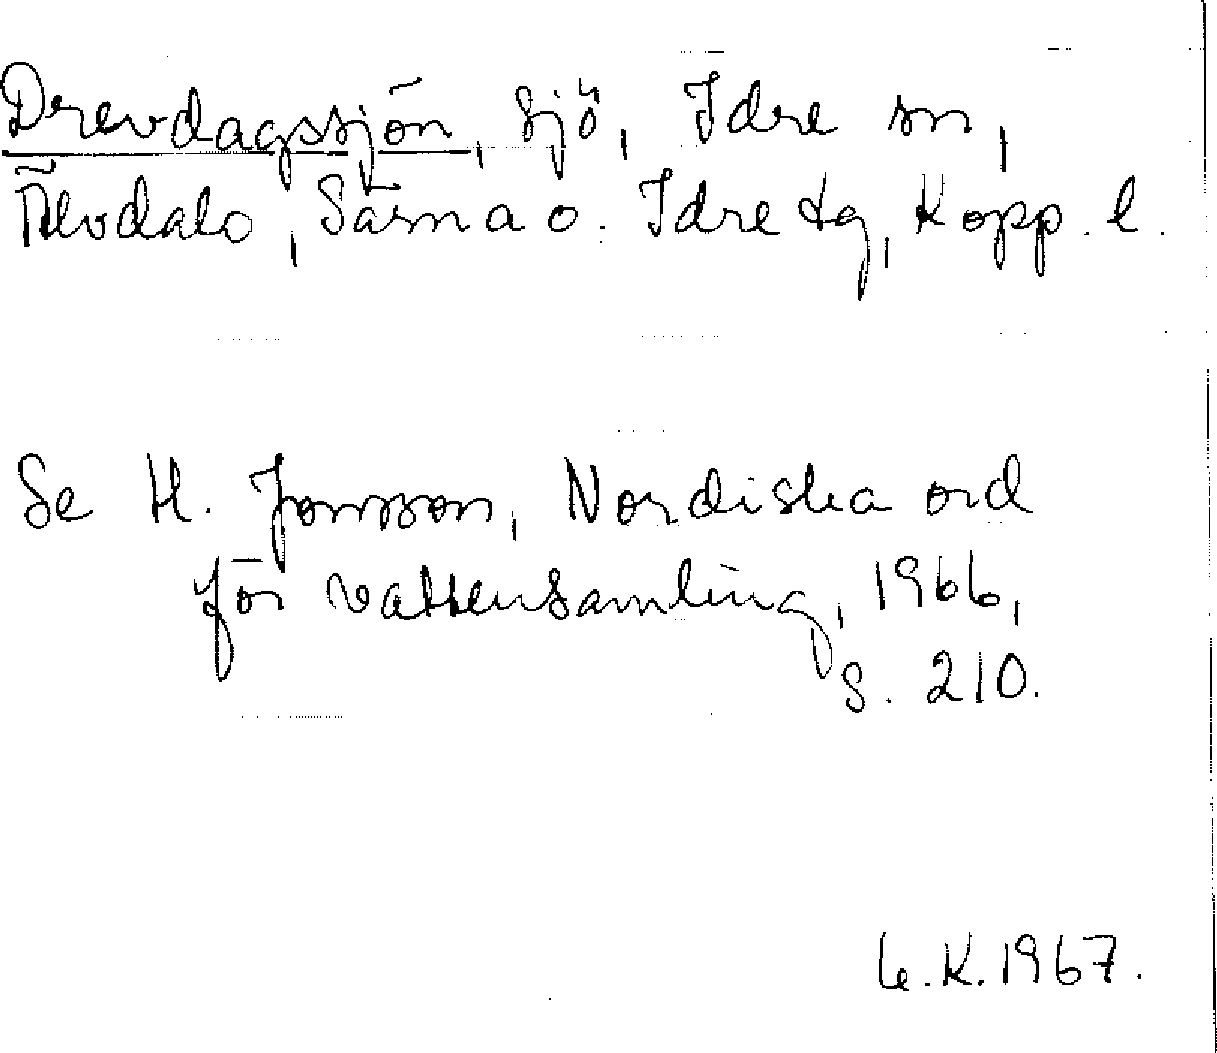 Drevdagssjön, sjö, Idre sn,
Älvdals, Särna o. Idre tg, Kopp. l.
Se H. Jonsson, Nordiska ord
för vattensamling, 1966,
s. 210.
K. 1967.